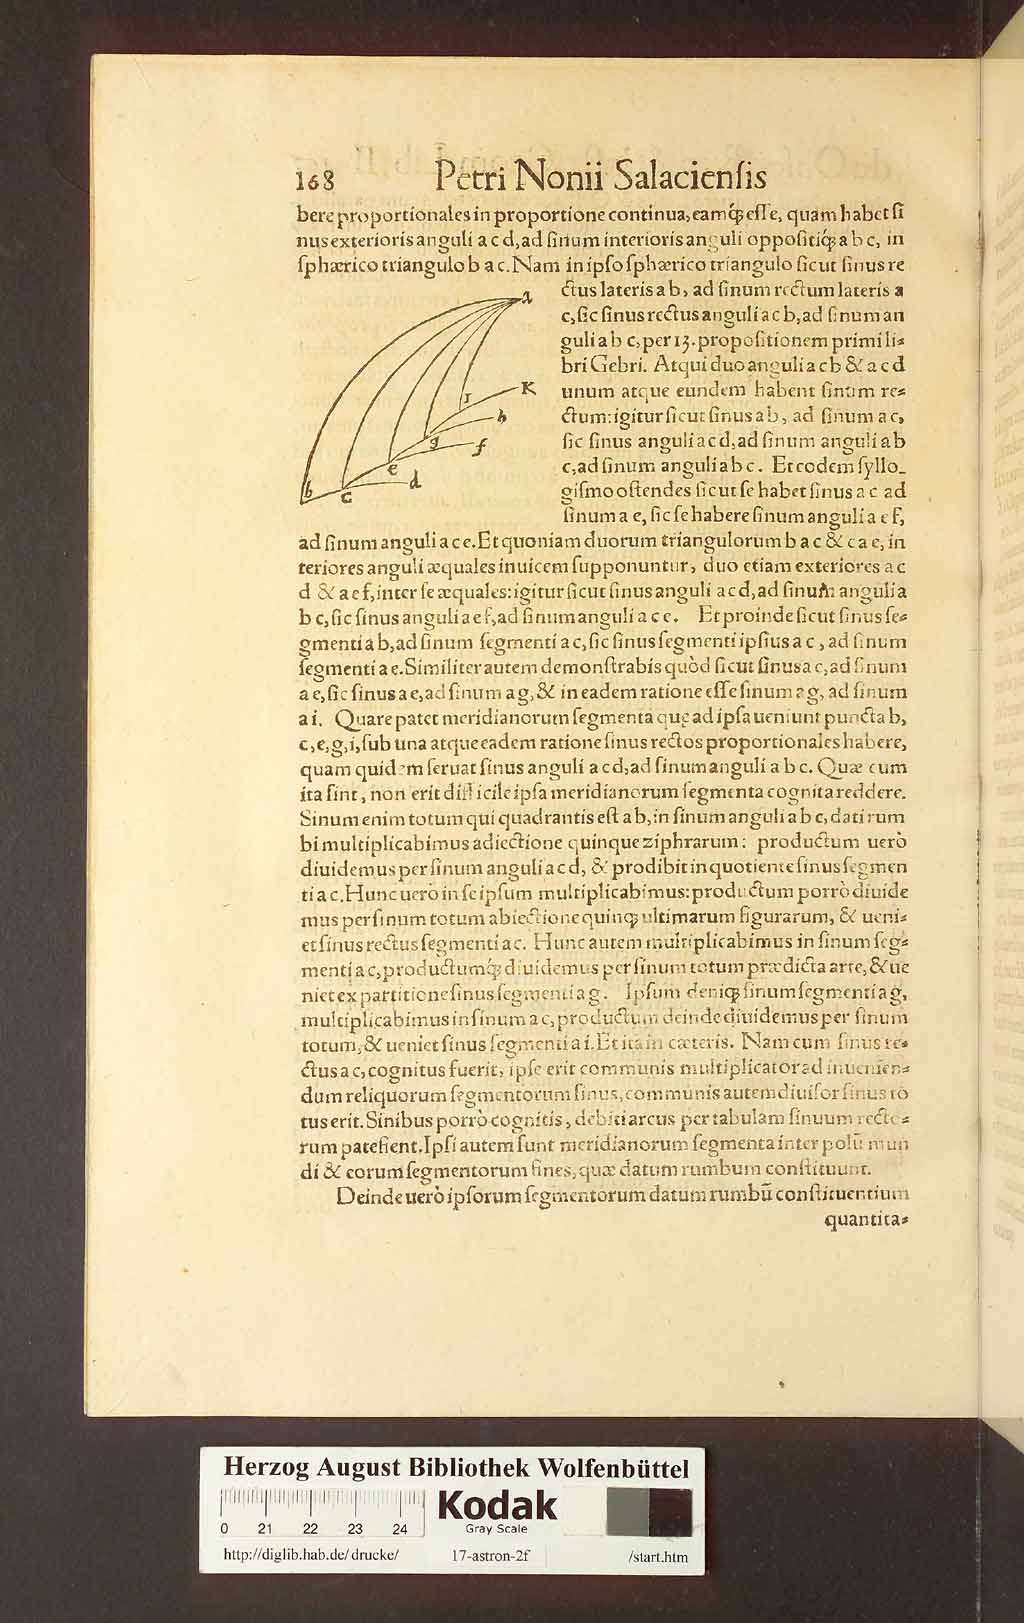 168 Petri Nonii Salaciensis
bere proportionales in proportione continua, eamq́ꝫ esse, quam habet si
nus exterioris anguli a c d, ad sinum interioris anguli oppositiq́ꝫ a b c, in
sphærico triangulo b a c. Nam in ipso sphærico triangulo sicut sinus re
ctus lateris a b, ad sinum rectum lateris a
c, sic sinus rectus anguli a c b, ad sinum an
guli a b c, per 13. propositionem primi li⸗
bri Gebri. Atqui duo anguli a c b & a c d
unum atque eundem habent sinum re⸗
ctum: igitur sicut sinus a b, ad sinum a c,
sic sinus anguli a c d, ad sinum anguli a b
c, ad sinum anguli a b c. Et eodem syllo⸗
gismo ostendes sicut se habet sinus a c ad
sinum a e, sic se habere sinum anguli a e f,
a
K
i
h
g
f
e
d
b
c
ad sinum anguli a c e. Et quoniam duorum triangulorum b a c & c a e, in
teriores anguli æquales inuicem supponuntur, duo etiam exteriores a c
d & a e f, inter se æquales: igitur sicut sinus anguli a c d, ad sinum anguli a
b c, sic sinus anguli a e f, ad sinum anguli a c e. Et proinde sicut sinus se⸗
gmenti a b, ad sinum segmenti a c, sic sinus segmenti ipsius a c, ad sinum
segmenti a e. Similiter autem demonstrabis quòd sicut sinus a c, ad sinum
a e, sic sinus a e, ad sinum a g, & in eadem ratione esse sinum a g, ad sinum
a i. Quare patet meridianorum segmenta quę ad ipsa ueniunt puncta b,
c, e, g, i, sub una atque eadem ratione sinus rectos proportionales habere,
quam quidem seruat sinus anguli a c d, ad sinum anguli a b c. Quæ cum
ita sint, non erit difficile ipsa meridianorum segmenta cognita reddere.
Sinum enim totum qui quadrantis est a b, in sinum anguli a b c, dati rum
bi multiplicabimus adiectione quinque ziphrarum: productum uerò
diuidemus per sinum anguli a c d, & prodibit in quotiente sinus segmen
ti a c. Hunc uerò in se ipsum multiplicabimus: productum porrò diuide
mus per sinum totum abiectione quinqꝫ ultimarum figurarum, & ueni⸗
et sinus rectus segmenti a c. Hunc autem multiplicabimus in sinum seg⸗
menti a c, productumq́ꝫ diuidemus per sinum totum prædicta arte, & ue
niet ex partitione sinus segmenti a g. Ipsum deniqꝫ sinum segmenti a g,
multiplicabimus in sinum a c, productum deinde diuidemus per sinum
totum, & ueniet sinus segmenti a i. Et ita in cæteris. Nam cum sinus re⸗
ctus a c, cognitus fuerit, ipse erit communis multiplicator ad inuenien⸗
dum reliquorum segmentorum sinus, communis autem diuisor sinus to
tus erit. Sinibus porrò cognitis, debiti arcus per tabulam sinuum recto⸗
rum patefient. Ipsi autem sunt meridianorum segmenta inter polū mun
di & eorum segmentorum fines, quæ datum rumbum constituunt.
Deinde uerò ipsorum segmentorum datum rumbū constituentium
quantita⸗
Herzog August Bibliothek Wolfenbüttel
0 21 22 23 24
Kodak
Gray Scale
http://diglib.hab.de/drucke/ 17-astron-2f /start.htm